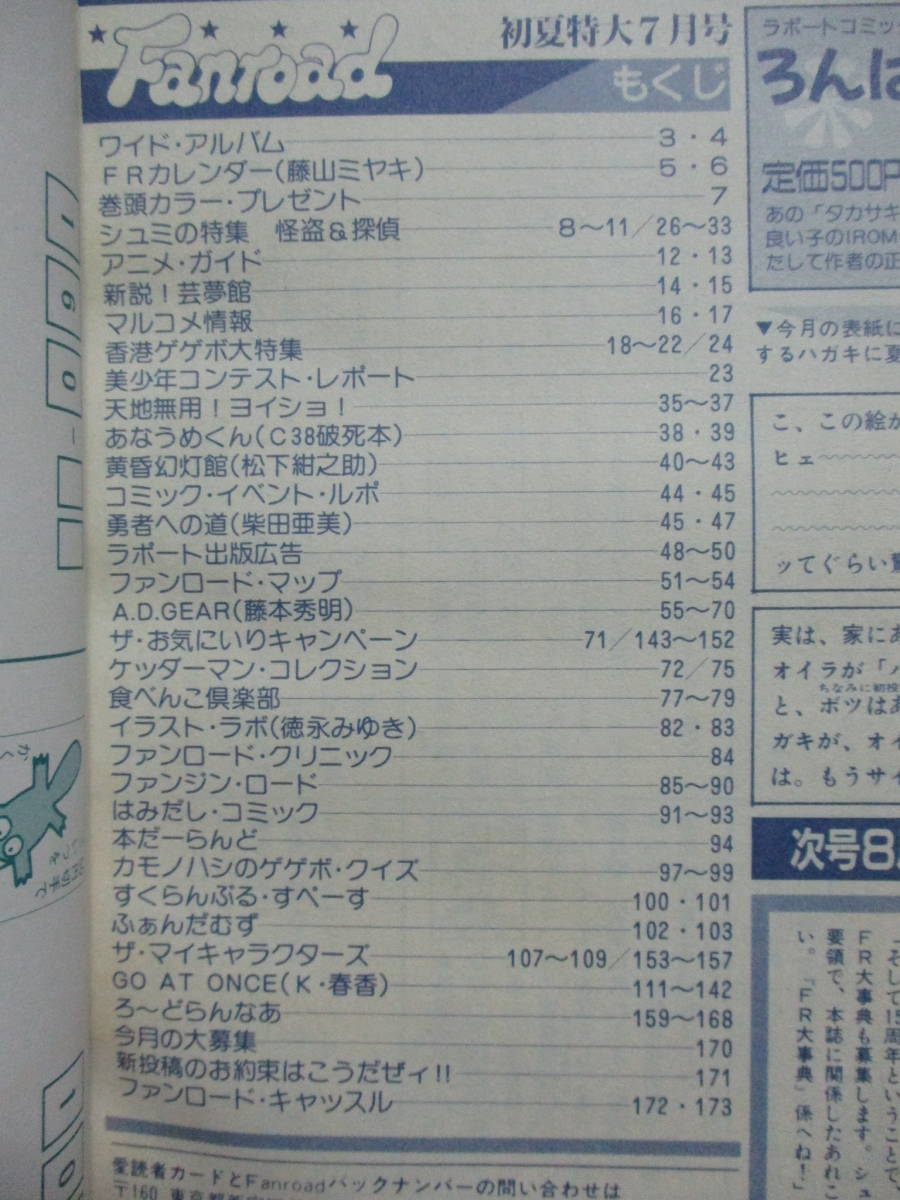 Fanroad
初夏特大7月号
もくじ
ワイド・アルバム 3・4
FRカレンダー(藤山ミヤキ) 5・6
巻頭カラー・プレゼント 7
シュミの特集 怪盗&探偵 8〜11/26〜33
アニメ・ガイド 12・13
新説!芸夢館 14・15
マルコメ情報 16・17
香港ゲゲボ大特集 18〜22/24
美少年コンテスト・レポート 23
天地無用!ヨイショ! 35〜37
あなうめくん(C38破死本) 38・39
黄昏幻灯館(松下紺之助) 40〜43
コミック・イベント・ルポ 44・45
勇者への道(柴田亜美) 45・47
ラポート出版広告 48〜50
ファンロード・マップ 51〜54
A.D.GEAR(藤本秀明) 55〜70
ザ・お気にいりキャンペーン 71/143〜152
ケッダーマン・コレクション 72/75
食べんこ倶楽部 77〜79
イラスト・ラボ(徳永みゆき) 82・83
ファンロード・クリニック 84
ファンジン・ロード 85〜90
はみだし・コミック 91〜93
本だーらんど 94
カモノハシのゲゲボ・クイズ 97〜99
すくらんぶる・すぺーす 100・101
ふぁんだむず 102・103
ザ・マイキャラクターズ 107〜109/153〜157
GO AT ONCE(K・春香) 111〜142
ろ〜どらんなあ 159〜168
今月の大募集 170
新投稿のお約束はこうだぜィ!! 171
ファンロード・キャッスル 172・173
愛読者カードとFanroadバックナンバーの問い合わせは
〒160 東京都新宿
ラポートコミッ
ろんは
定価500円
あの「タカサキ
良い子のIROM
たして作者の正
▼今月の表紙に
するハガキに夏
こ、この絵が
ヒェ〜
ッてぐらい驚
実は、家にあ
オイラが「バ
ちなみに初投
と、ボツはあ
ガキが、オイ
は。もうサイ
次号8
「そして15周年ということで、
FR大事典も募集します。シュ
要領で、本誌に関係したあれこ
い。「FR大事典」係へね!
160-